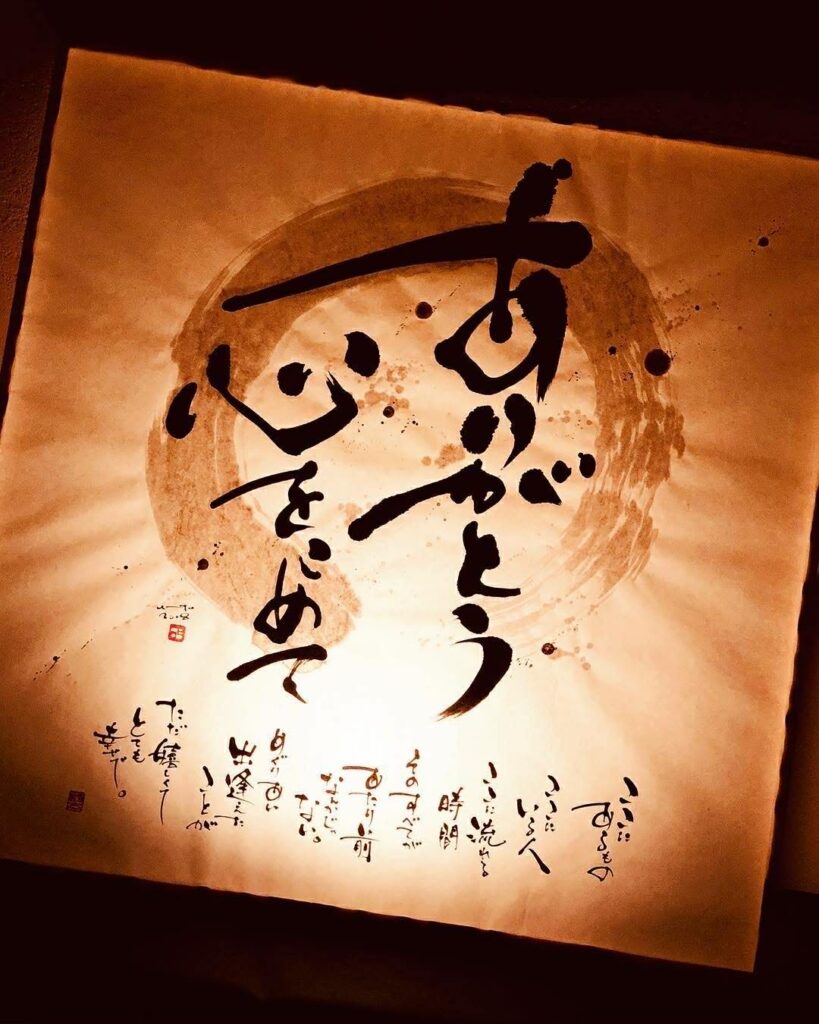 ありがとう
心をこめて
ここに
あるもの
ここに
いる人
ここに流れる
時間
そのすべてが
あたり前
なんかじゃ
ない。
めぐりあい
出逢えた
ことが
ただ嬉しくて
とても
幸せで。